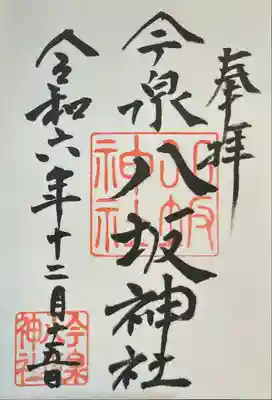 奉拝
今泉八坂神社
令和六年十二月十五日
八坂神社
今泉
神社